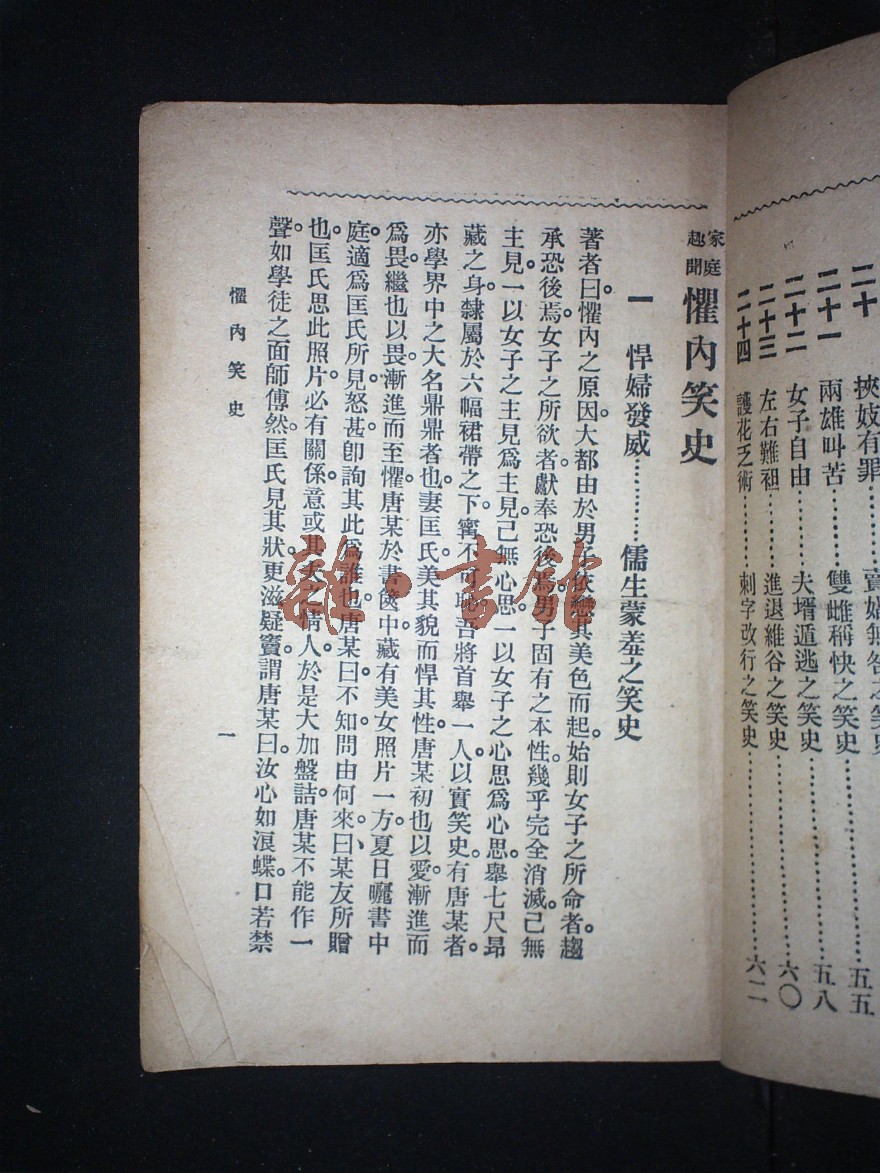 二十　挾妓有罪……賣娼無咎之笑史……五五
二十一　兩雄叫苦……雙雌稱快之笑史……五八
二十二　女子自由……夫壻遁逃之笑史……六〇
二十三　左右難袒……進退維谷之笑史
二十四　護花乏術……刺字改行之笑史……六二
家庭趣聞　懼內笑史
一　悍婦發威…………儒生蒙羞之笑史
著者曰。懼內之原因。大都由於男子依戀其美色而起。始則女子之所命者。趨
承恐後焉。女子之所欲者。獻奉恐後焉。男子固有之本性。幾乎完全消滅。己無
主見。一以女子之主見爲主見。己無心思。一以女子之心思爲心思。舉七尺昂
藏之身。隸屬於六幅裙帶之下。寗不可恥。吾將首舉一人。以實笑史。有唐某者。
亦學界中之大名鼎鼎者也。妻匡氏。美其貌而悍其性。唐某初也以愛漸進而
爲畏。繼也以畏漸進而至懼。唐某於書篋中。藏有美女照片一方。夏日曬書中
庭。適爲匡氏所見。怒甚。卽詢其此爲誰也。唐某曰。不知。問由何來。曰、某友所贈
也。匡氏思此照片。必有關係。意或其夫之情人。於是大加盤詰。唐某不能作一
聲。如學徒之面師傅然。匡氏見其狀。更滋疑竇。謂唐某曰。汝心如浪蝶。口若禁
懼內笑史
一
雜·書館